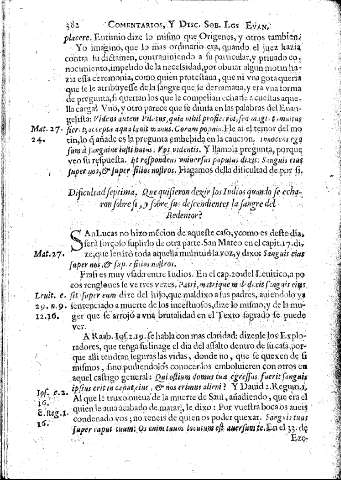 382 COMENTARIOS, Y DISC. SOB. LOS EVAN,
placere. Eutimio dize lo mismo que Origenes, y otros tambien.
Yo imagino, que lo mas ordinario era, quando el juez hazia
contra su dictamen, contraviniendo a su particular, y privado co,
nocimiento, impelido de la necesidad, por obviar algun motin ha
zia esta ceremonia, como quien protestava, que ni vna gota queria
que se le atribuyesse de la sangre que la derramava, y era vna forma
de pregunta, si querian los que le compelian echarse a cuestas aque-
lla carga? Vno, y otro parece que se dunta en las palabras del Evan-
gelista: Videns autem Pilatus, quia nihil proficeret, sed magis tumultus
Mat. 27. fieret, accepta aqua lavit manus. Coram populo. He ai el temor del mo
24. tin, lo que añade es la pregunta embebida en la caucion. innocens ego
sum à sanguine iusti huius. Vos videritis. Y llamola pregunta, porque
veo su respuesta. Et respondens universus populus dixit: Sanguis eius
super nos, & super filios nostros. Hagamos della dificultad de por si.
Dificultad septima. Que quisieron dezir los Iudios quando se echa-
ron sobre si, y sobre sus descendientes la sangre del
Redentor?
SAn Lucas no hizo mencion de aqueste caso, y como es deste dia,
será forçoso suplirlo de otra parte. San Mateo en el capit. 27. di-
Mat. 27. ze, que levantò toda aquella multitud la voz, y dixo: Sanguis eius
super nos, & sup. filios nostros.
Frasi es muy vsada entre Iudios. En el cap. 20 del Levitico, a po
cos renglones se ve tres vezes. Patri, matrique maledixit sanguis eius
Levit. e. sit super eum dize del hijo, que maldixo a los padres, aviendolo ya
20. n. 9. sentenciado a muerte de los incestuosos, dize lo mismo, y de la mu-
12. 16. ger que se arrojò a vna brutalidad en el Texto sagrado se puede
ver.
A Raab. Ios. 2. 19. se habla con mas claridad: dizenle los Explo-
radores, que tenga su linage el dia del assalto dentro de su casa, por-
que alli tendran seguras las vidas, donde no, que se quexen de si
mismos, sino pudiendolos conocer los embolvieren con otros en
aquel castigo general: Qui ostium domus tuæ egressus fuerit: sanguis
Ios. c. 2. ipsius erit in caput eius, & nos erimus alieni? Y David 2. Regum 1.
16. Al que le traxo nueva de la muerte de Saul, añadiendo, que era el
& Reg. 1. quien le avia acabado de matar, le dixo: Por vuestra boca os aveis
16. condenado vos; no teneis de quien os poder quexar. Sanguis tuus
super caput tuum: Os enim tuum locutum est adversum te. En el 33. de
Eze-